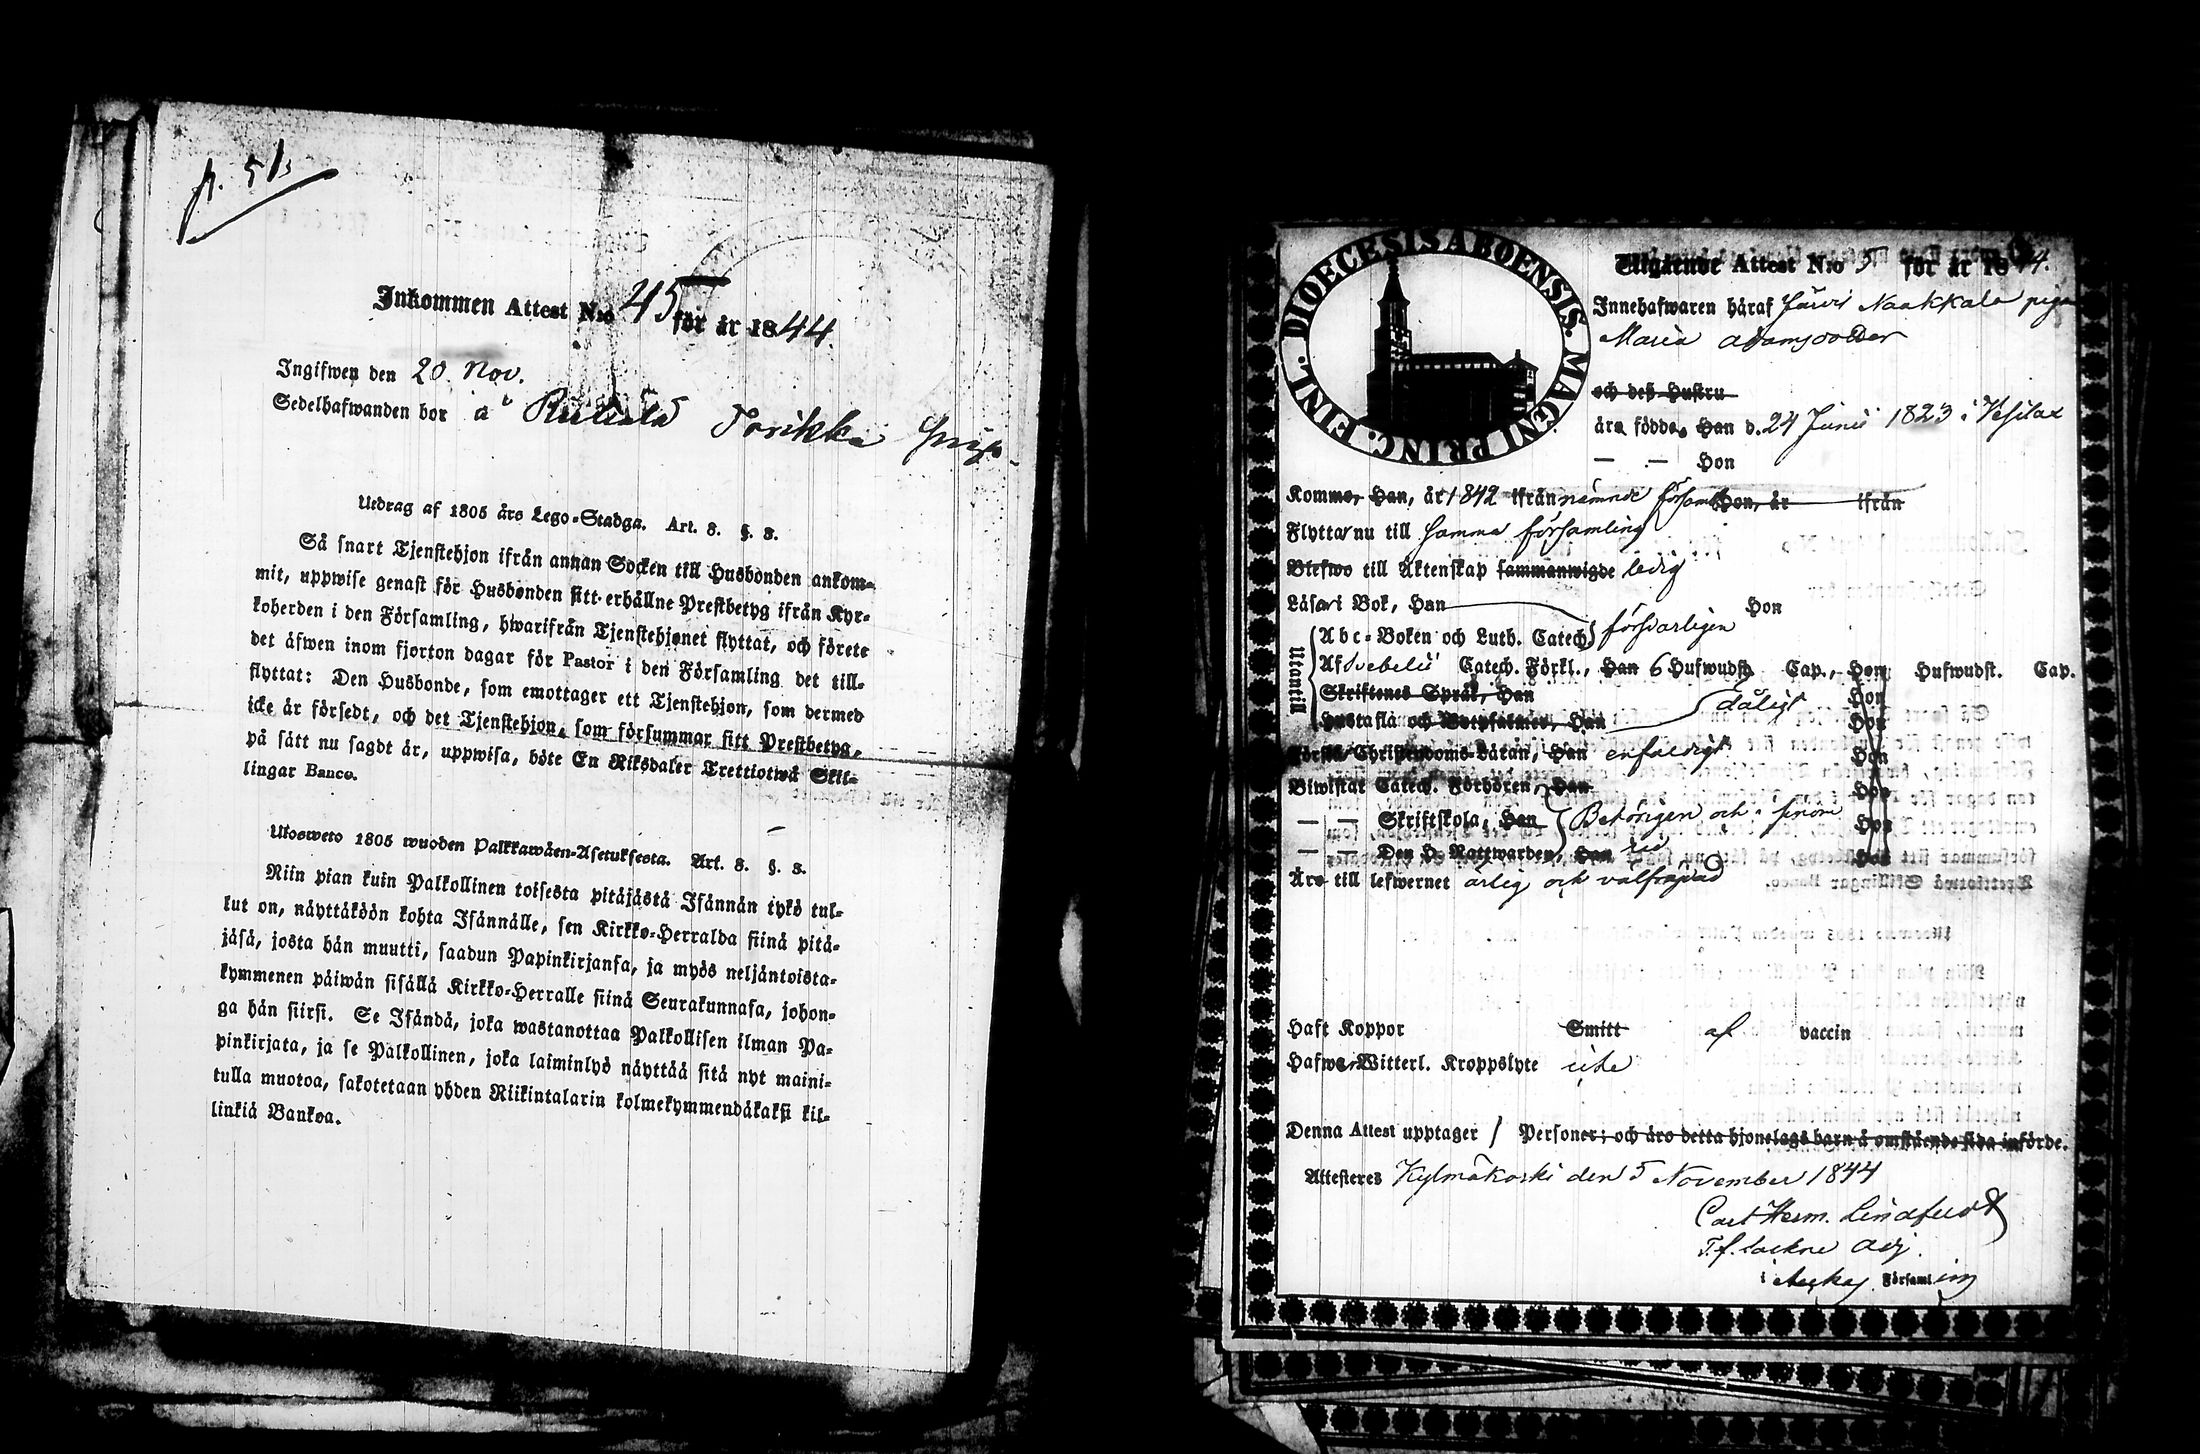 p. 513
Inkommen Attest N:o 45 för år 1844.
Ingifwen den 20 Nov.
Sedelhafwanden bor å
Utdrag af 1805 års Lego-Stadga. Art. 8. §. 3.
Så snart Tjenstehjon ifrån annan Socken till Husbonden ankom-
mit, uppwise genast för Husbonden sitt erhållne Prestbetyg ifrån Kyr-
koherden i den Församling, hwarifrån Tjenstehjonet flyttat, och förete
det äfwen inom fjorton dagar för Pastor i den Församling det till-
flyttat: Den Husbonde, som emottager ett Tjenstehjon, som dermed
icke är försedt, och det Tjenstehjon, som försummar sitt Prestbetyg,
på sätt nu sagdt är, uppwisa, böte En Riksdaler Trettiotwå Skil-
lingar Banco.
Ulosweto 1805 wuoden Palkkawäen-Asetuksesta. Art. 8. §. 3.
Niin pian kuin Palkollinen toisesta pitäjästä Isännän tykö tul-
lut on, näyttäköön kohta Isännälle, sen Kirkko-Herralda siinä pitä-
jäsä, josta hän muutti, saadun Papinkirjansa, ja myös neljäntoista-
kymmenen päiwän sisällä Kirkko-Herralle siinä Seurakunnasa, johon-
ga hän siirsi. Se Isändä, joka wastanottaa Palkollisen ilman Pa-
pinkirjata, ja se Palkollinen, joka laiminlyö näyttää sitä nyt maini-
tulla muotoa, sakotetaan yhden Riikintalarin kolmekymmendäkaksi kil-
linkiä Bankoa.
DIOECESIS ABOENSIS. MAGNI PRINC. FINL.
Utgående Attest N:o 5 för år 1844.
Innehafwaren häraf Jäwis Naakkala piga
Maria Adamsdotter
och deß Hustru
äro födde, Han d. 24 Junii 1823 i Vesilax
— — Hon
Kommo, Han, år 1842 ifrån nämnde församl. Hon, år ifrån
Flytta nu till samma församling
Blefwo till Äktenskap sammanwigde ledig
Läsa i Bok, Han Hon
Utantill
Abc-Boken och Luth. Catech. försvarligen
Af Svebelii Catech. Förkl., Han 6 Hufwudst. Cap., Hon Hufwudst. Cap.
Skriftenes Språk, Han Hon
dåligt
Hustafla och Botpsalmer, Han Hon
Förstå Christendoms-Läran, Han enfaldigt Hon
Biwistat Catech. Förhören, Han Hon
— — Skriftskola, Han Behörigen och i sinom Hon
— — Den H. Nattwarden, Han tid Hon
Äro till lefwernet ärlig och välfrejdad
Haft Koppor Smitt af vaccin
Hafwa Witterl. Kroppslyte icke
Denna Attest upptager 1 Personer; och äro detta hjonelags barn å omstående sida införde.
Attesteres Kylmäkoski den 5 November 1844
Carl Herm. Lindstedt
T.f. Sockne Adj.
i Församling